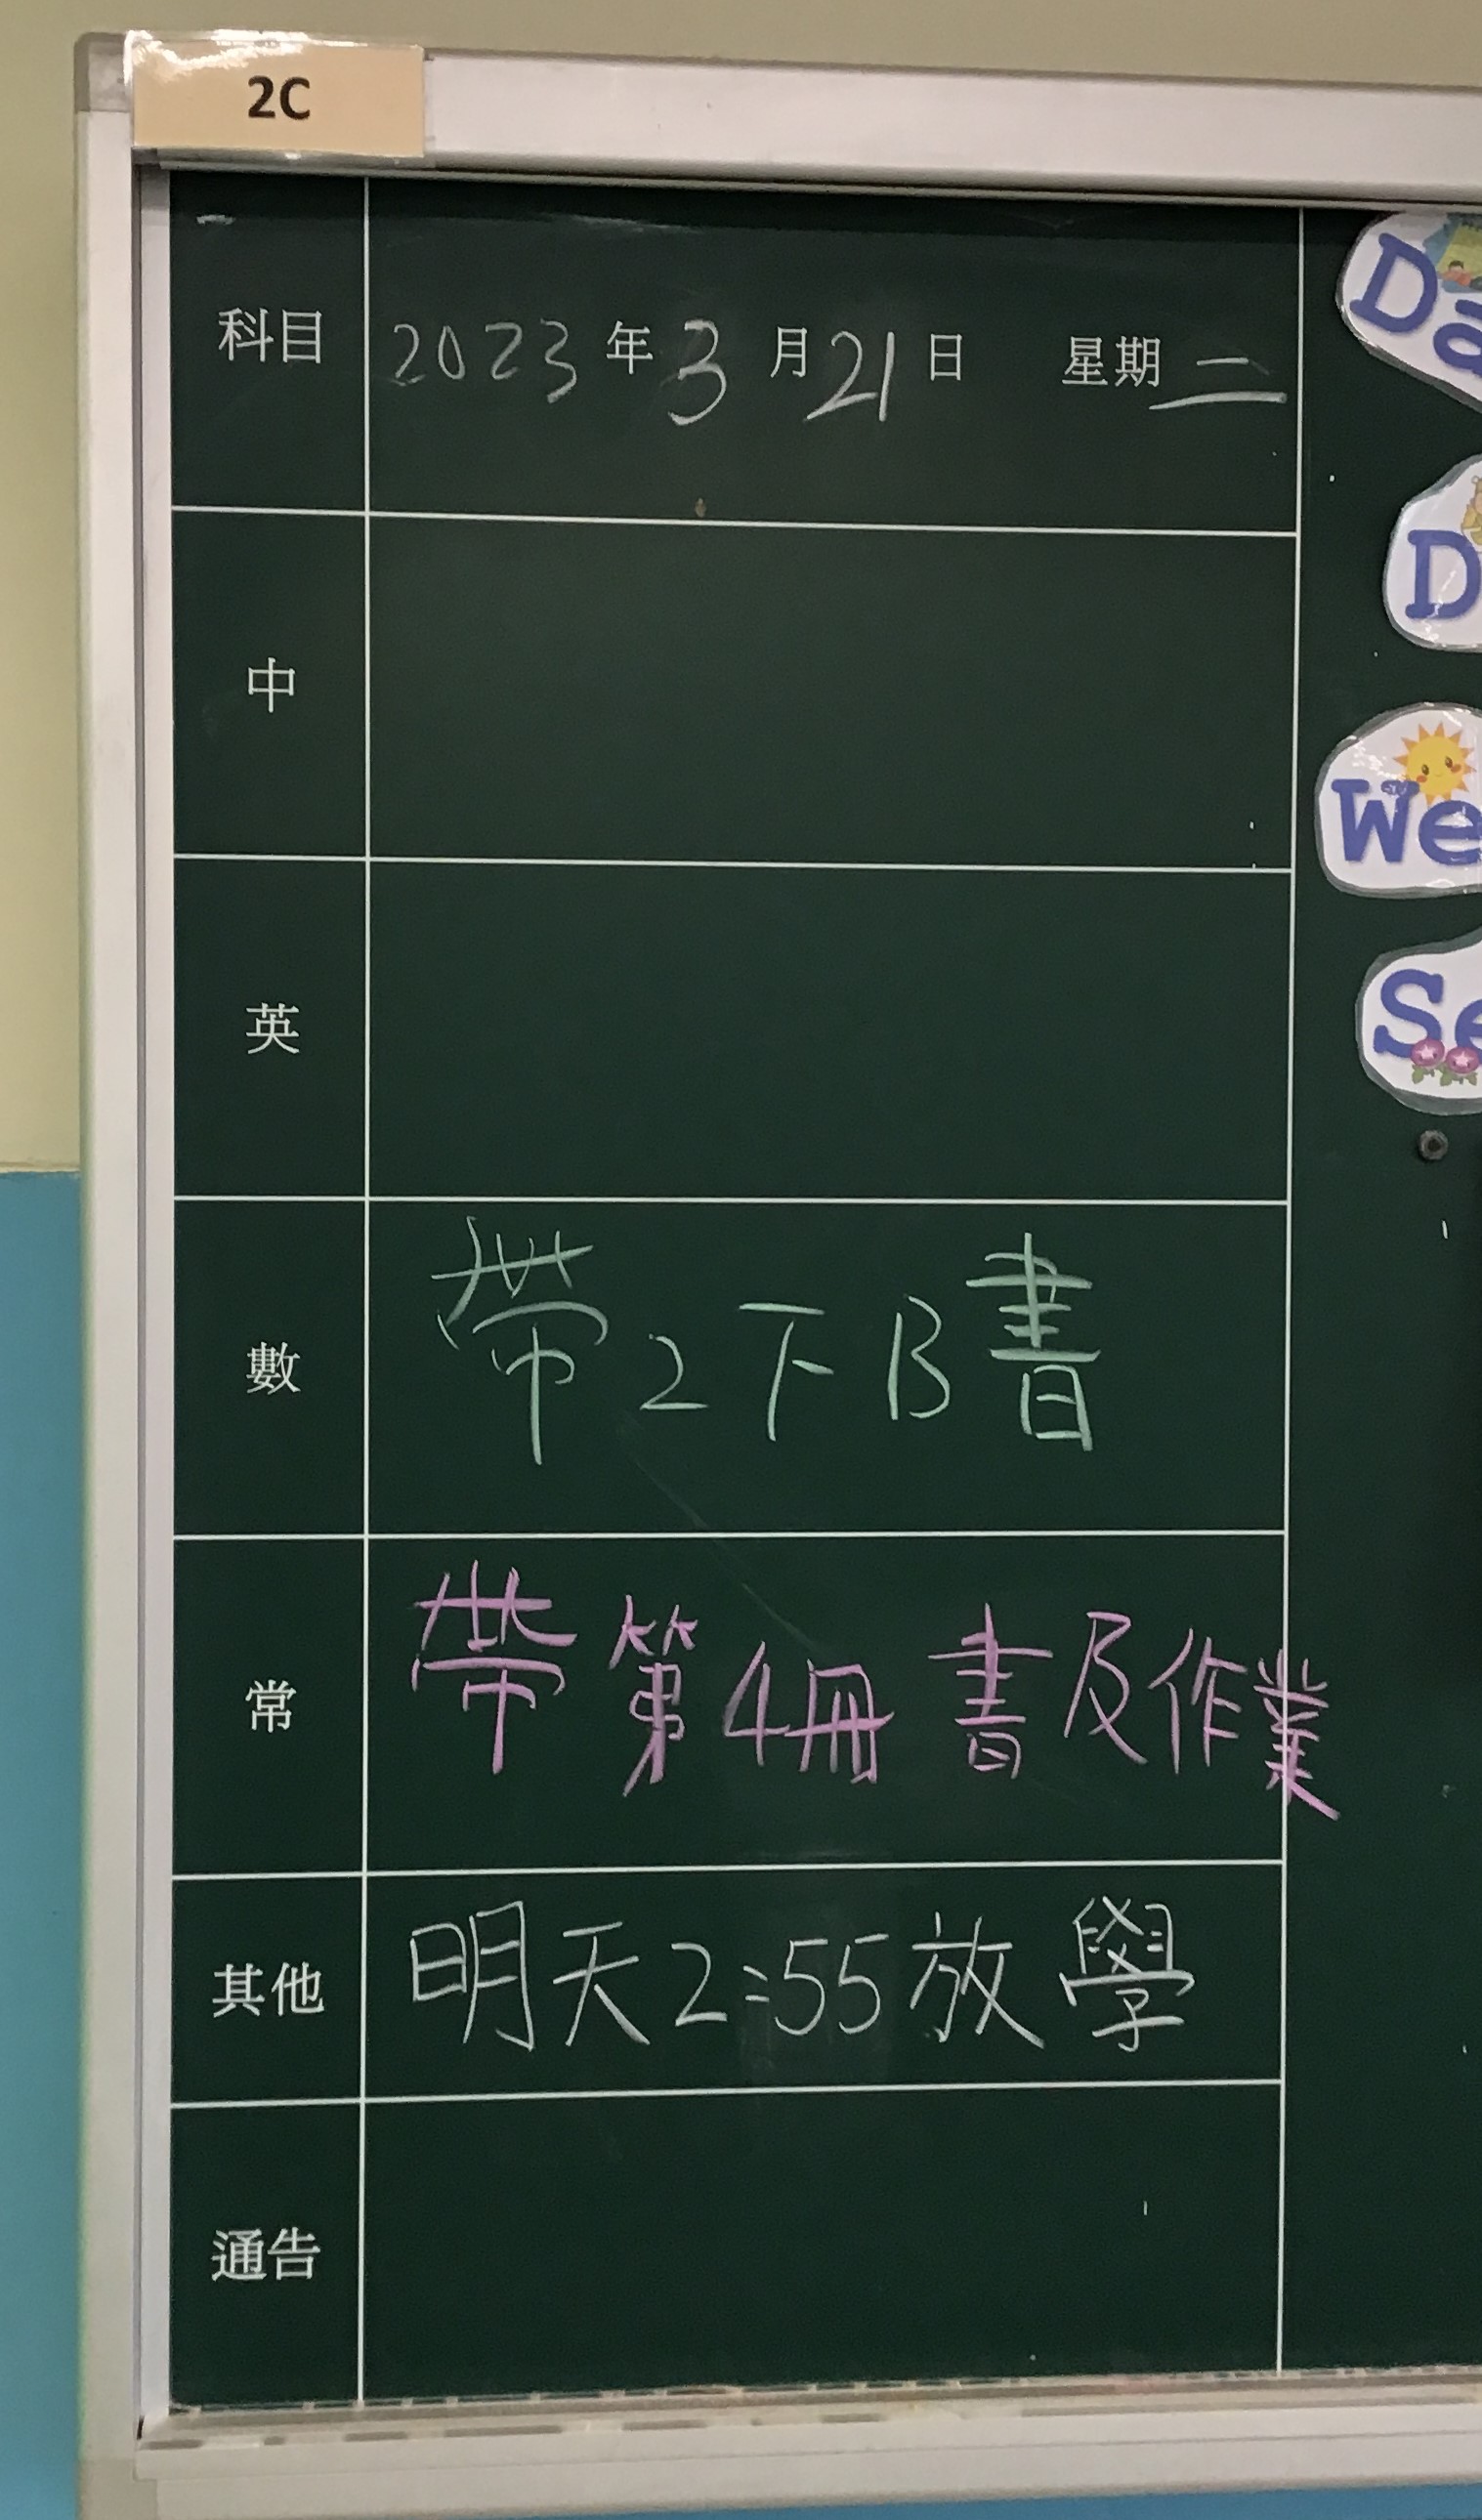 2C
科目 2023年3月21日 星期二
中
英
數 帶2下B書
常 帶第4冊書及作業
其他 明天2:55放學
通告
Da
D
We
Se